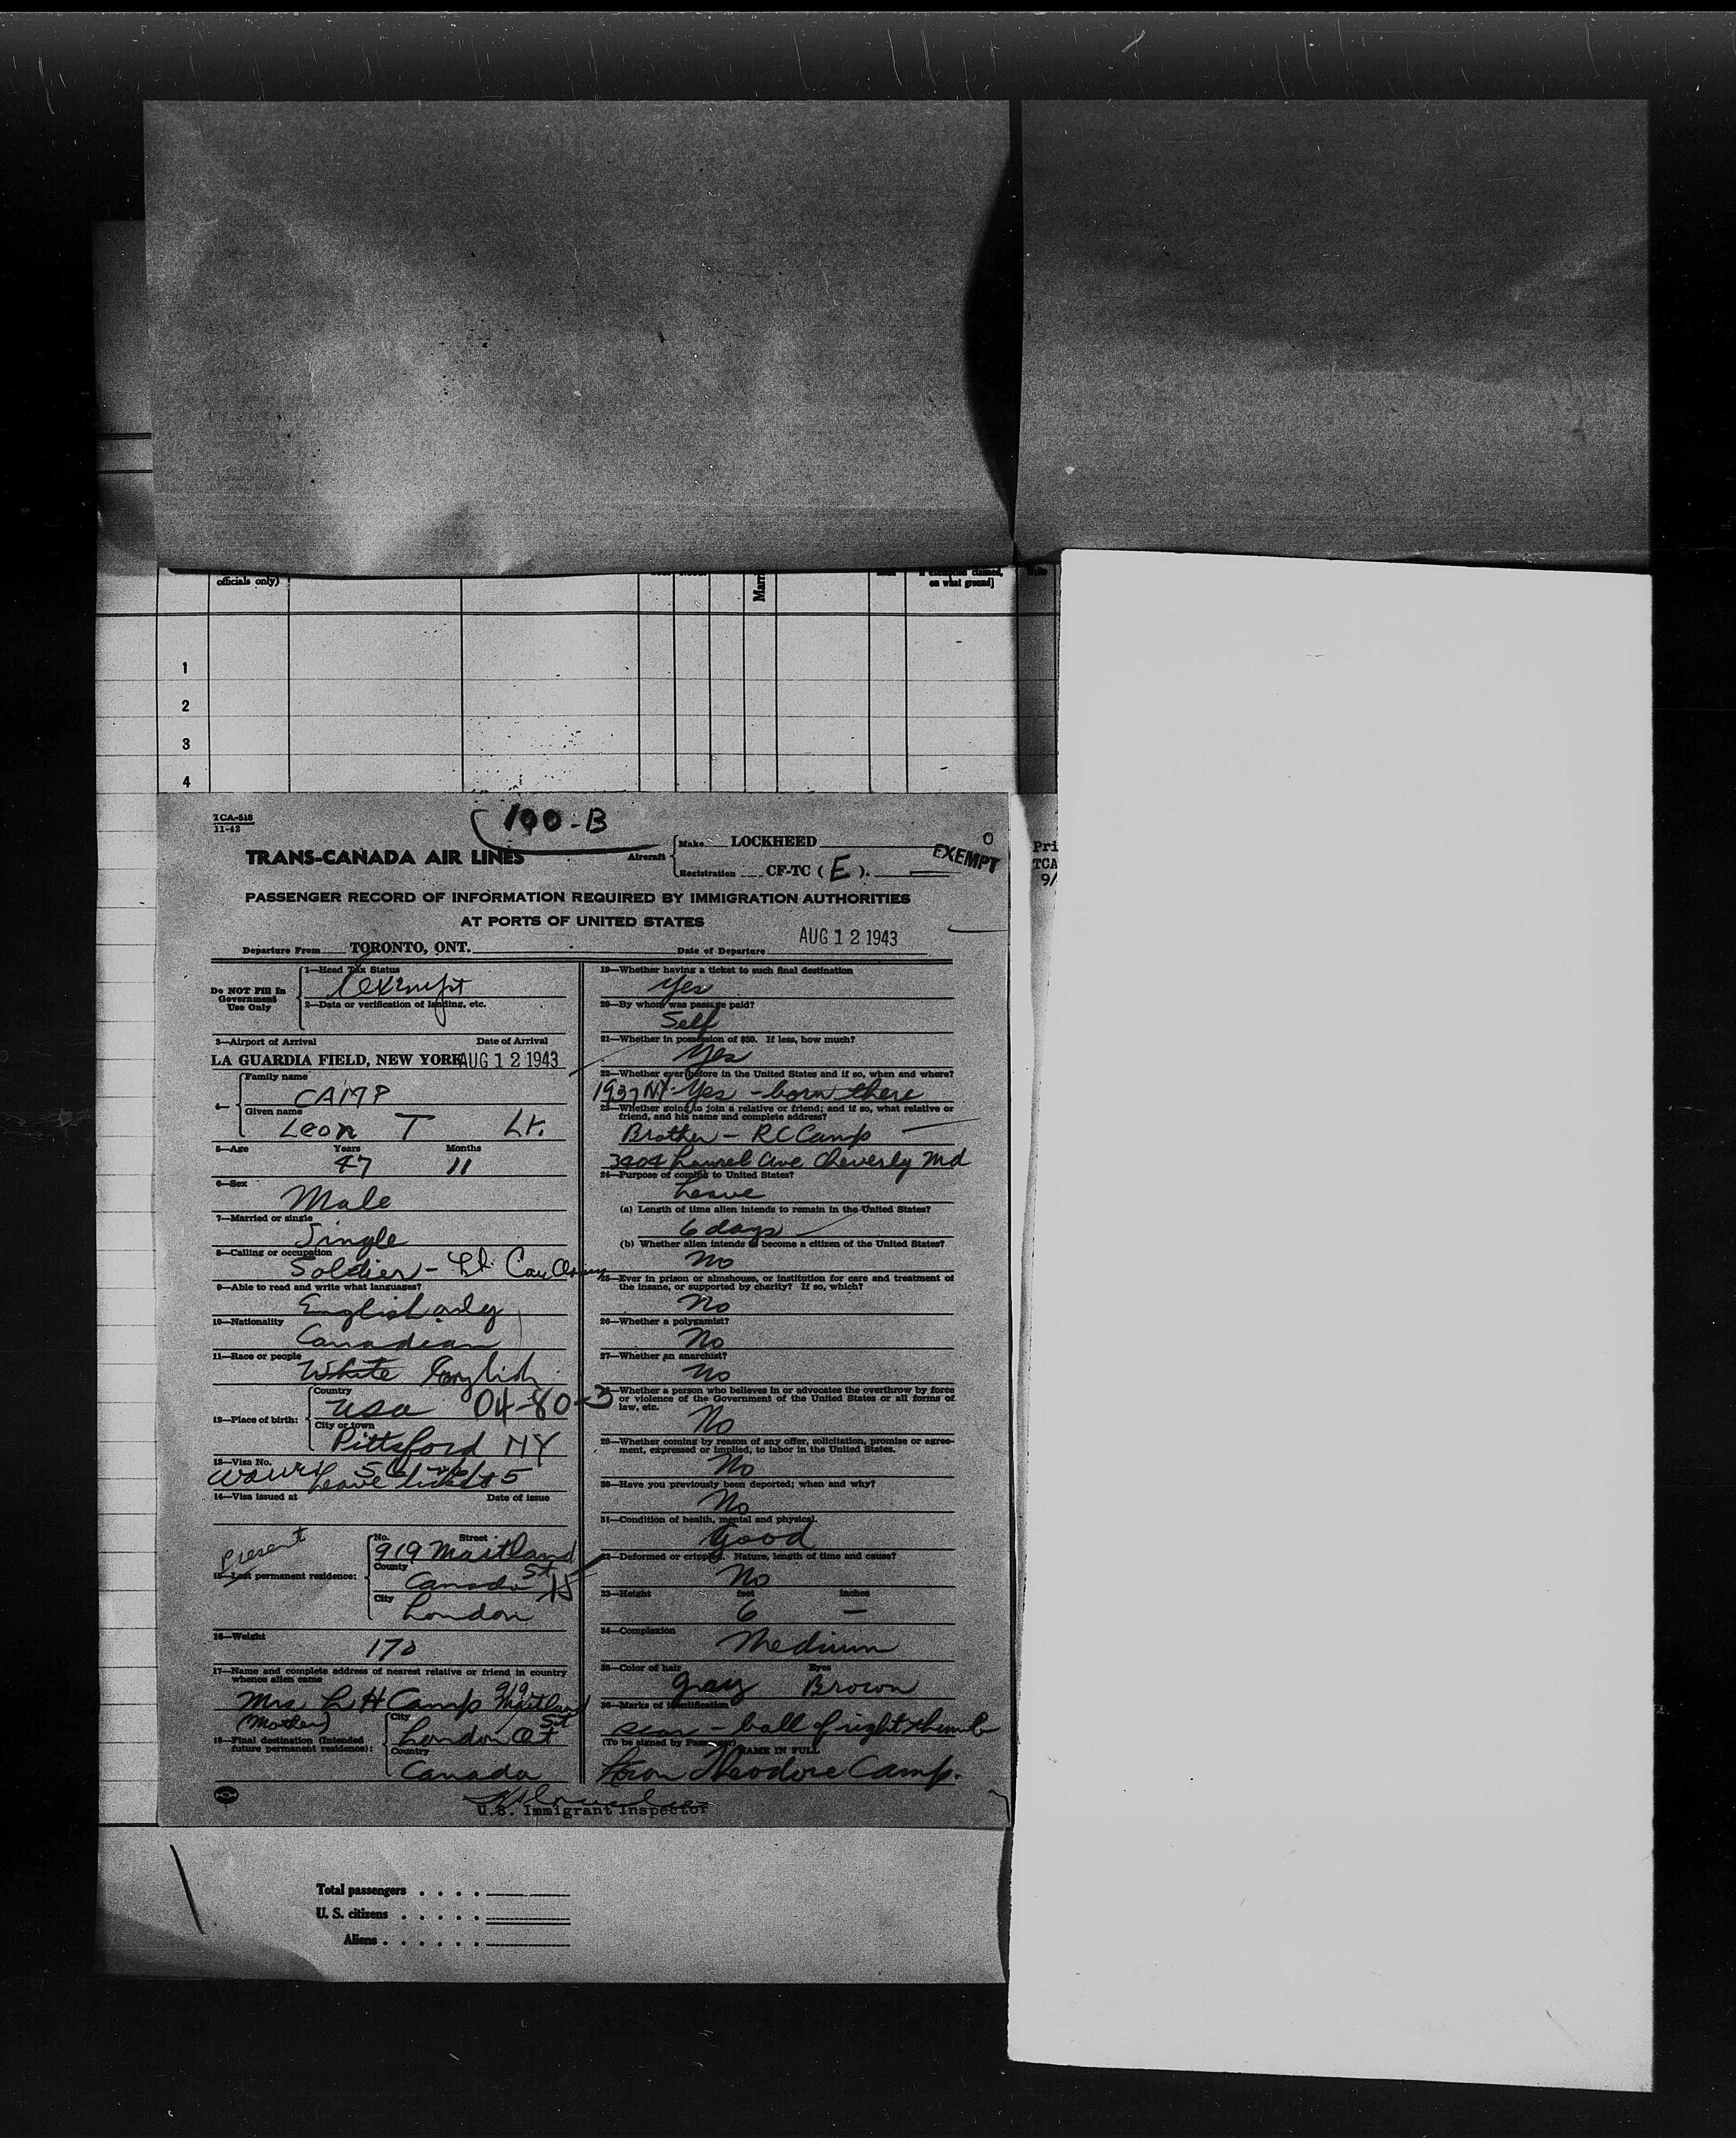 officials only)
Marr
if exemption claimed,
on what ground]
1
2
3
4
TCA-518
11-42
190-B
TRANS-CANADA AIR LINES
Aircraft
Make LOCKHEED
Registration CF-TC ( E ).
O
EXEMPT
Pri
TCA
9/
PASSENGER RECORD OF INFORMATION REQUIRED BY IMMIGRATION AUTHORITIES
AT PORTS OF UNITED STATES
Departure From TORONTO, ONT. Date of Departure AUG 12 1943
Do NOT Fill In
Government
Use Only
1—Head Tax Status
exempt
2—Data or verification of landing, etc.
3—Airport of Arrival Date of Arrival
LA GUARDIA FIELD, NEW YORK AUG 12 1943
4—
Family name
CAMP
Given name
Leon T Lt.
5—Age Years Months
47 11
6—Sex
Male
7—Married or single
Single
8—Calling or occupation
Soldier - Lt. Can Army
9—Able to read and write what languages?
English only
10—Nationality
Canadian
11—Race or people
White English
12—Place of birth:
Country
USA 04-80-3
City or town
Pittsford NY
13—Visa No.
Leave ticket 5
14—Visa issued at Date of issue
Present
15—Last permanent residence:
No. Street
919 Maitland
St
County
Canada
City
London
16—Weight
170
17—Name and complete address of nearest relative or friend in country
whence alien came
Mrs L H Camp 919 Maitland
St
(Mother)
18—Final destination (Intended
future permanent residence):
City
London Ot
Country
Canada
19—Whether having a ticket to such final destination
Yes
20—By whom was passage paid?
Self
21—Whether in possession of $50. If less, how much?
Yes
22—Whether ever before in the United States and if so, when and where?
1937 NY - Yes - born there
23—Whether going to join a relative or friend; and if so, what relative or
friend, and his name and complete address?
Brother - R C Camp
3404 Laurel Ave Cheverly Md
24—Purpose of coming to United States?
Leave
(a) Length of time alien intends to remain in the United States?
6 days
(b) Whether alien intends to become a citizen of the United States?
No
25—Ever in prison or almshouse, or institution for care and treatment of
the insane, or supported by charity? If so, which?
No
26—Whether a polygamist?
No
27—Whether an anarchist?
No
28—Whether a person who believes in or advocates the overthrow by force
or violence of the Government of the United States or all forms of
law, etc.
No
29—Whether coming by reason of any offer, solicitation, promise or agree-
ment, expressed or implied, to labor in the United States.
No
30—Have you previously been deported; when and why?
No
31—Condition of health, mental and physical.
Good
32—Deformed or crippled. Nature, length of time and cause?
No
33—Height feet inches
6 —
34—Complexion
Medium
35—Color of hair Eyes
gray Brown
36—Marks of identification
scar - ball of right thumb
(To be signed by Passenger)
NAME IN FULL
Leon Theodore Camp.
U.S. Immigrant Inspector
Total passengers . . . .
U. S. citizens . . . . .
Aliens . . . . . .